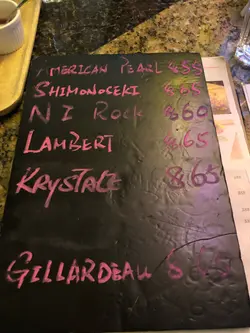 AMERICAN PEARL $55
SHIMONOSEKI $65
N I ROCK $60
LAMBERT $65
KRYSTALE $65
GILLARDEAU $65